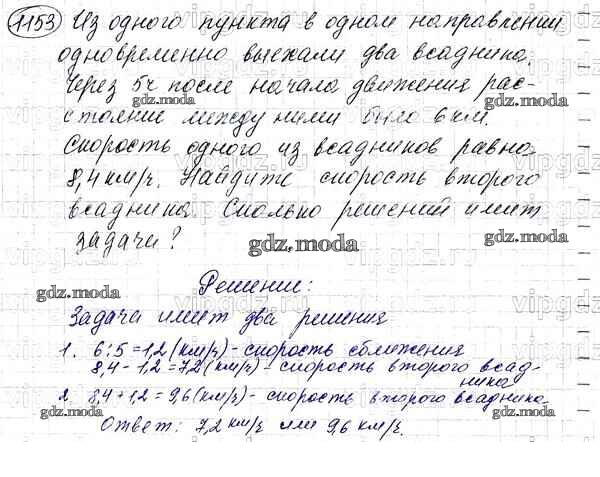 1153 Из одного пункта в одном направлении
одновременно выехали два всадника.
Через 5ч после начала движения рас-
стояние между ними было 6 км.
Скорость одного из всадников равна
8,4 км/ч. Найдите скорость второго
всадника. Сколько решений имеет
задача?
gdz.moda
Решение:
Задача имеет два решения
1. 6:5=1,2(км/ч)-скорость сближения
8,4-1,2=7,2(км/ч)-скорость второго всад-
ника
2. 8,4+1,2=9,6(км/ч)-скорость второго всадника.
Ответ: 7,2 км/ч или 9,6 км/ч.